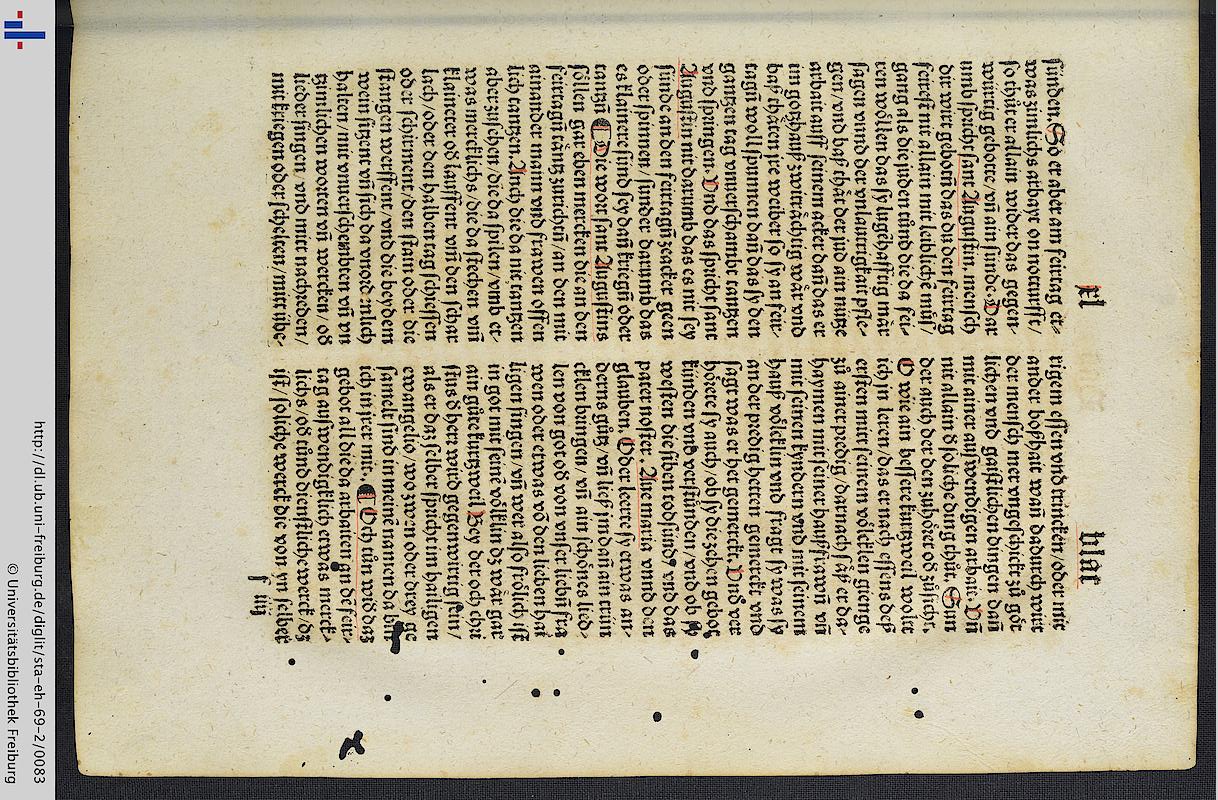 xl
blat
sünden. So er aber am feirtag et-
was zimlichs arbayt on notturfft/
so thůt er allain wider das gegen-
würtig gebotte/ vñ ain sünde. Dar
umb spricht sant Augustin, mensch
dir wirt geboten das du den feirtag
feirest nit allain mit leiblichē müs/
gang als die juden
ren wöllen das sy
sagen/ vnnd der vnlautrigkait pfle-
gen/ vnd baß thät der jud ain nütze
arbait auff seinem acker dañ das er
im gotzhauß zwiträchtig wär vnd
baß thäten jre weiber so sy an feir-
tagñ woll spunnen dañ das sy den
gantzen tag vnuerschambt tantzen
vnd springen. Vnd das spricht sant
Augustin nit darumb das es nit sey
sünde an den feirtagñ zeacker geen
oder spinnen/ sunder darumb das
es klainere sünd sey dañ kriegñ oder
tantzñ Die wort sant Augustins
söllen gar eben mercken die an den
feirtagñ täntz zurichtñ/ an den mit
ainander mann vnd frawen offen
lich tantzen. Auch die da nit tantzen
aber zusehen/ die da spilen/ vmb et-
was mercklichs/ die da stechen vm̄
klaineter oď lauffent vm̄ den schar
lach/ oder den halben tag schiessen
oder schirment/ den stain oder die
stangen werffent/ vnd die bey dem
wein sitzent vñ sich da vnord nlich
halten/ mit vnuerschambten vñ vn
zimlichen worten vñ wercken/ oď
lieder singen/ vnd mitt nachreden/
mit kriegen oder schelten/ mitt übe-
rigem essen vnd trincken/ oder mit
ander boßhait wañ dadurch wirt
der mensch mer vngeschickt zů göt
lichen vnd gaistlichen dingen dañ
mit ainer außwendigen arbait. Vñ
nit allain ď soliche ding thůt. Sun
der auch der den zuhöret oď zůsicht.
O wie ain bessere kurtzweil wolt
ich in leren/ das er nach essens deß
ersten mitt seinem völcklen gienge
zů ainer predig/ darnach säß er da-
haymen mit seiner haußfrawñ vñ
mit seinen kyndern vnd mit seinem
hauß völcklin vnd fragt sy was sy
an der predig hetten gemerckt, vnd
sagt was er het gemerckt. Vnd ver
hörete sy auch/ ob sy die zehen gebot
künden vnd verstünden/ vnd ob sy
westen die siben todsünd/ vnd den
pater noster. Aue maria vnnd den
glauben. Oder leerte sy etwas an-
derns gůtz/ vñ ließ jn dañ ain trin
cklen bringen/ vñ ain schönes lied-
len von got oď von vnser liebñ fra
wen oder etwas vō den lieben hai
ligen singen/ vñ wer also frölich
in got mit seinē völcklin dz wär gar
ain gůte kurtzweil Bey der och chri
stus ď herr wurd gegenwirtig sein/
als er daz selber spricht im hailigen
ewangelio/ wo zwen oder drey/ ge
samelt sind in meinē namen da bin
ich in jrer mit. Och tůn wid daz
gebot all die da arbaiten an dē feir-
tag außwendigklich etwas merck-
lichs/ oď tůnd dienstliche werck/ dz
ist/ soliche werck die von jn selber
f iij
http://dl.ub.uni-freiburg.de/diglit/sta-eh-69-2/0083
© Universitätsbibliothek Freiburg